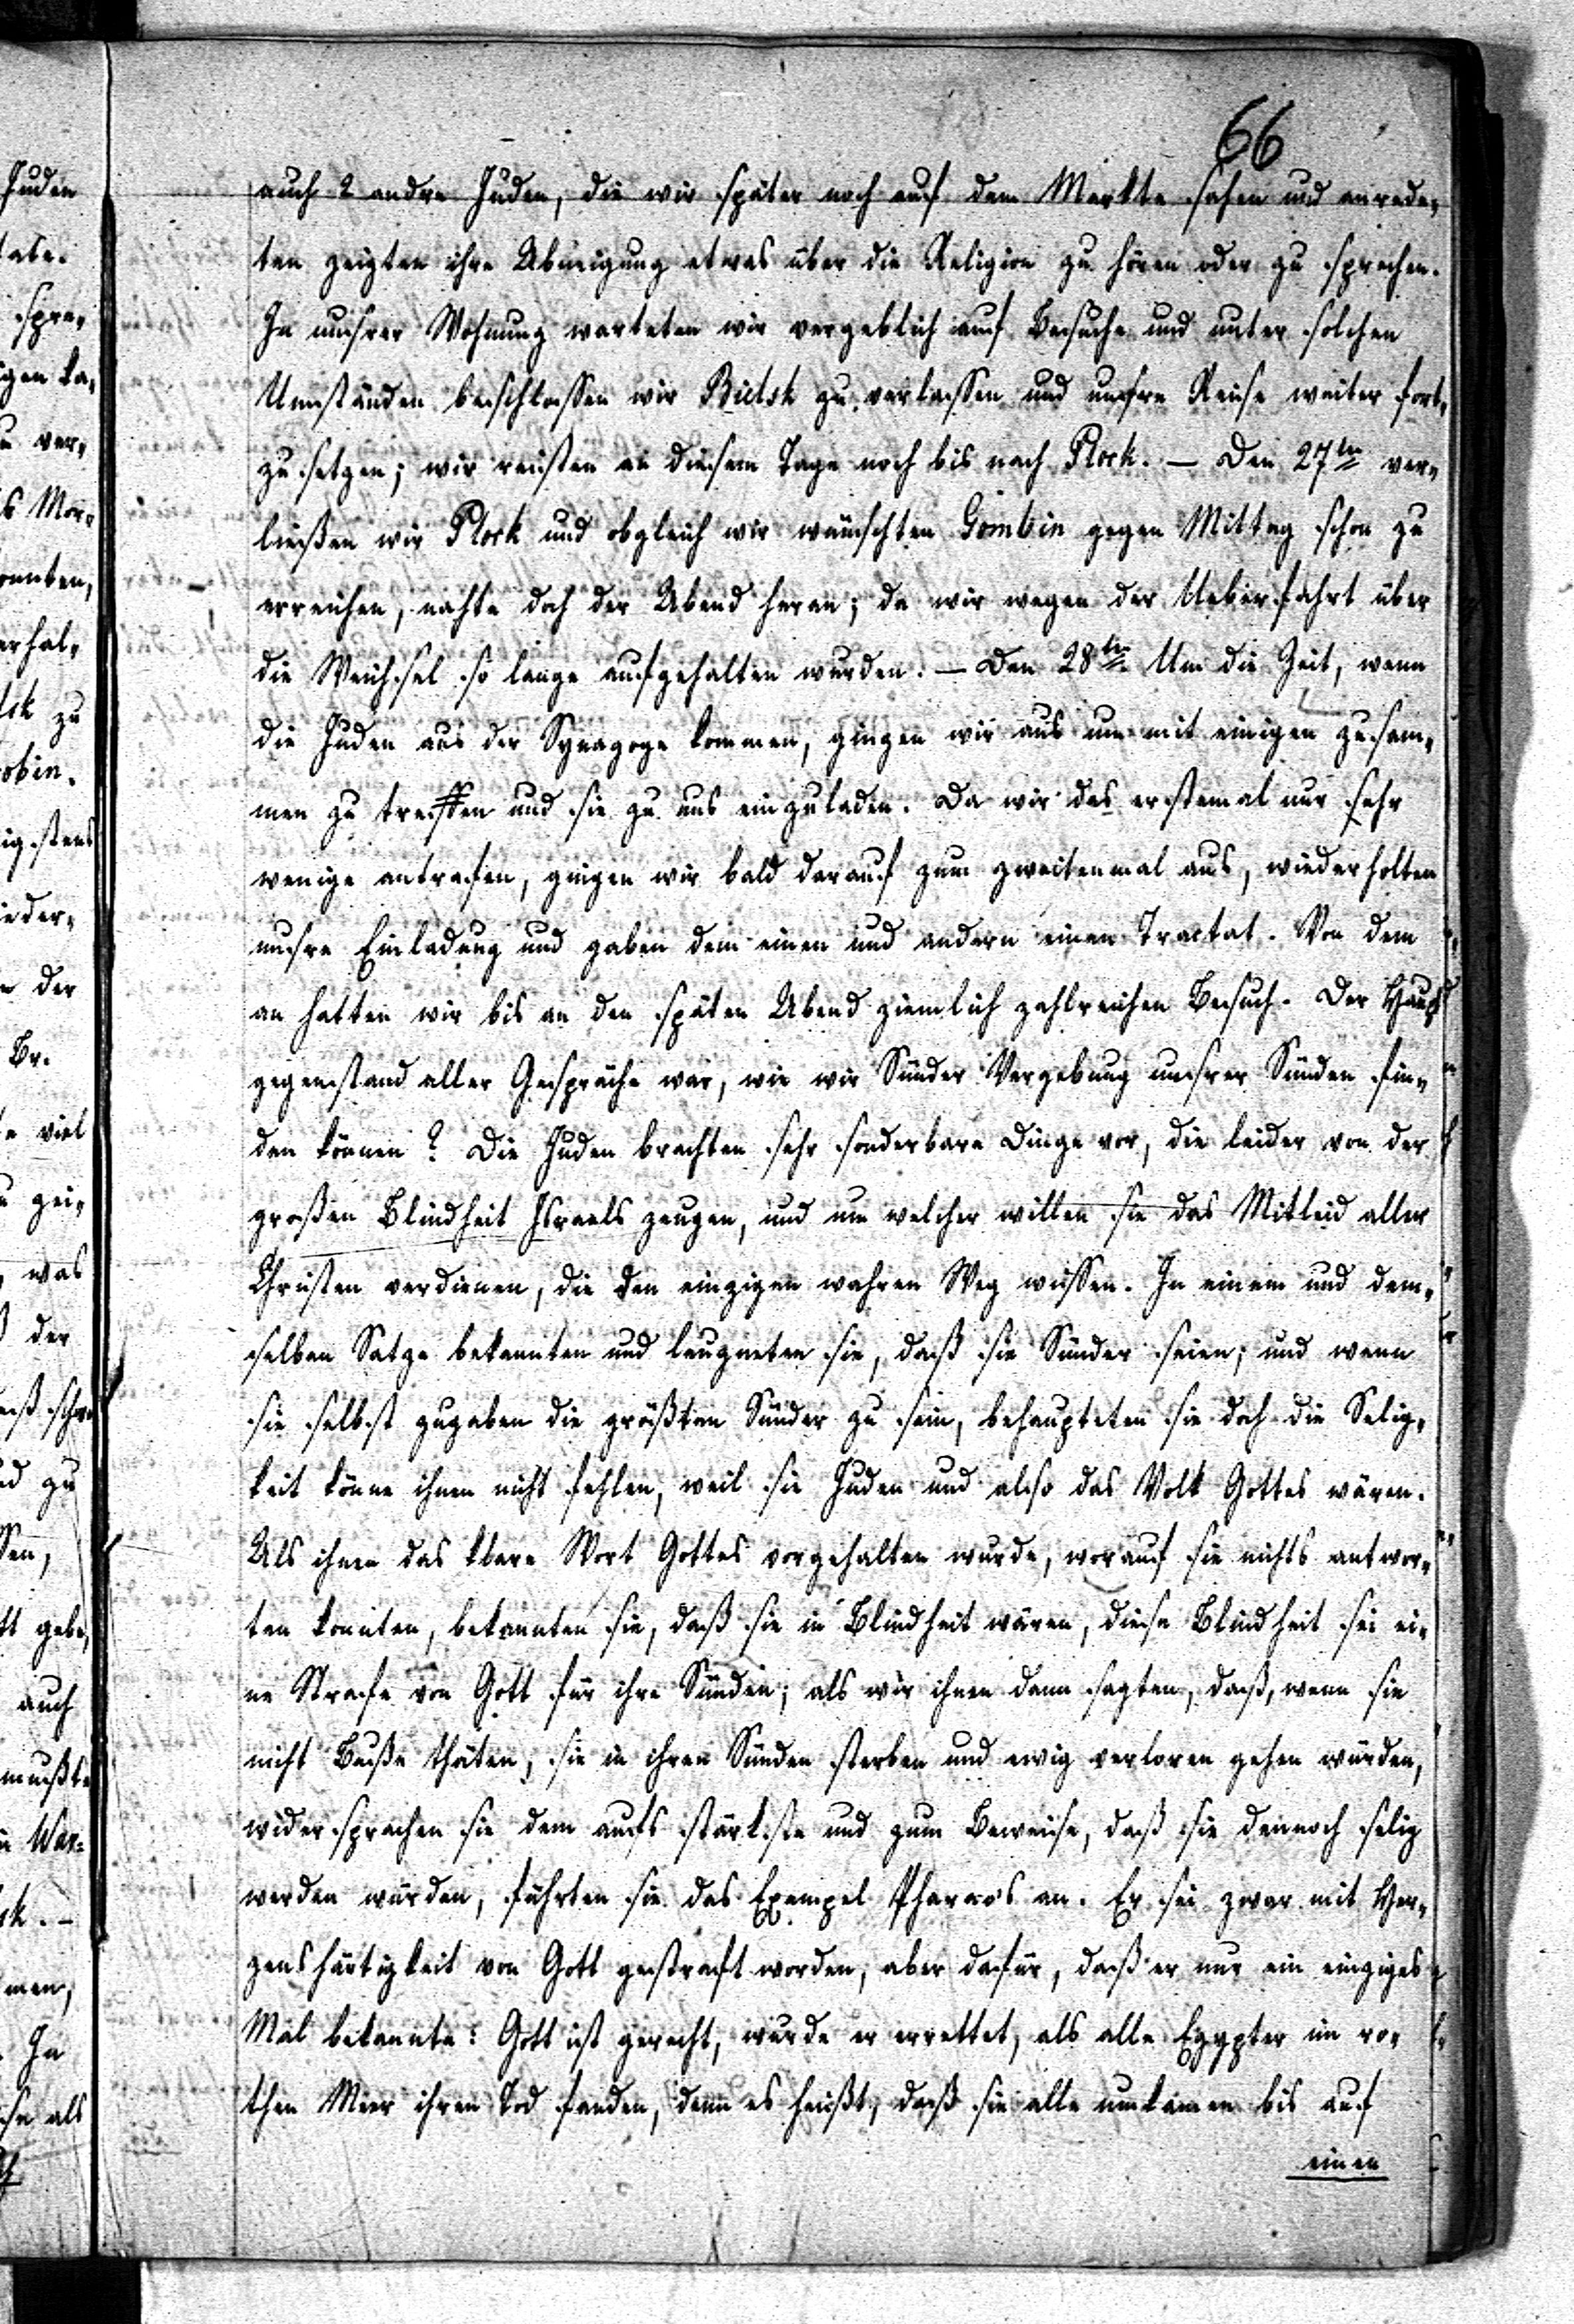 66
auch 2 andre Juden, die wir später noch auf dem Markte sahen und anrede-
ten zeigten ihre Abneigung etwas über die Religion zu hören oder zu sprechen.
In unsrer Wohnung warteten wir vergeblich auf Besuche und unter solchen
Umständen beschlossen wir Bielsk zu verlassen und unsre Reise weiter fort-
zusetzen; wir reisten an diesem Tage noch bis nach Plock. — Den 27ten ver-
ließen wir Plock und obgleich wir wünschten Gombin gegen Mittag schon zu
erreichen, nahte doch der Abend heran; da wir wegen der Ueberfahrt über
die Weichsel so lange aufgehalten wurden. — Den 28ten Um die Zeit, wenn
die Juden aus der Synagoge kommen, gingen wir aus um mit einigen zusam-
men zu treffen und sie zu uns einzuladen. Da wir das erstemal nur sehr
wenige antrafen, gingen wir bald darauf zum zweitenmal aus, wiederholten
unsre Einladung und gaben dem einen und andern einen Tractat. Von dem
an hatten wir bis an den späten Abend ziemlich zahlreichen Besuch. Der Haupt
gegenstand aller Gespräche war, wie wir Sünder Vergebung unsrer Sünden fin-
den können? Die Juden brachten sehr sonderbare Dinge vor, die leider von der
großen Blindheit Israels zeugen, und um welcher willen sie das Mitleid aller
Christen verdienen, die den einzigen wahren Weg wissen. In einem und dem-
selben Satze bekannten und leugneten sie, daß sie Sünder seien; und wenn
sie selbst zugaben die größten Sünder zu sein, behaupteten sie doch die Selig-
keit könne ihnen nicht fehlen, weil sie Juden und also das Volk Gottes wären.
Als ihnen das klare Wort Gottes vorgehalten wurde, worauf sie nichts antwor-
ten konnten, bekannten sie, daß sie in Blindheit wären, diese Blindheit sei ei-
ne Strafe von Gott für ihre Sünden; als wir ihnen dann sagten, daß, wenn sie
nicht Buße thäten, sie in ihren Sünden sterben und ewig verloren gehen würden,
widersprachen sie dem aufs stärkste und zum Beweise, daß sie dennoch selig
werden würden, führten sie das Exempel Pharao's an. Er sei zwar mit Her-
zenshärtigkeit von Gott gestraft worden, aber dafür, daß er nur ein einziges
Mal bekannte: Gott ist gerecht, wurde er errettet, als alle Egypter im ro-
then Meer ihren Tod fanden, denn es heißt, daß sie alle umkamen bis auf
einen